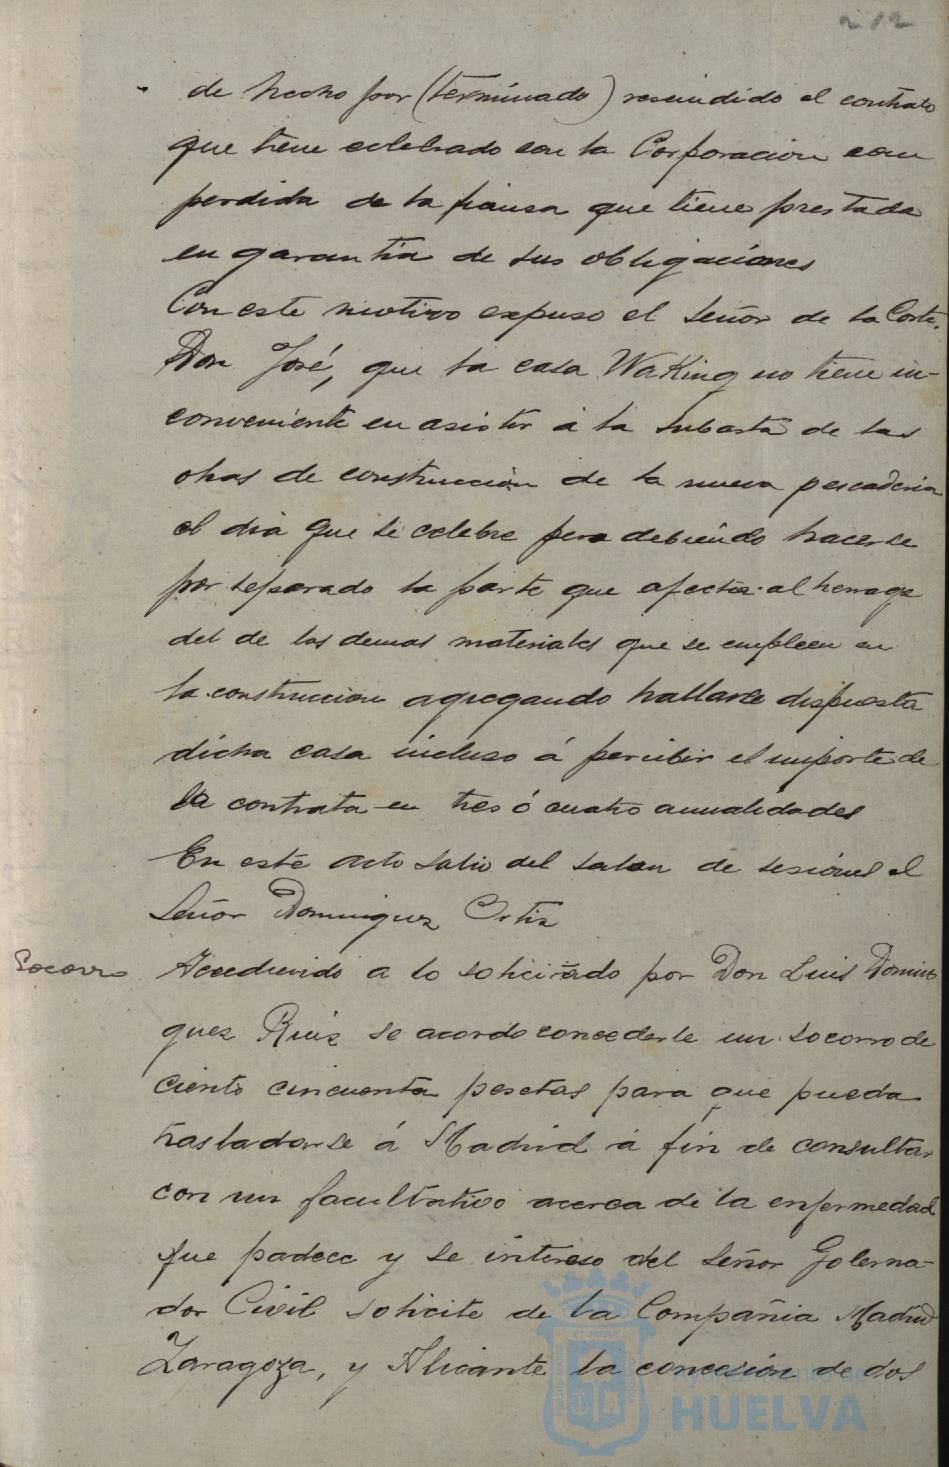 212
de hecho por (terminado) rescindido el contrato
que tiene celebrado con la Corporacion con
perdida de la fianza que tiene prestada
en garantia de sus obligaciones
Con este motivo expuso el Señor de la Corte,
Don José, que la casa WaKing no tiene in-
conveniente en asistir á la subasta de las
obras de construcción de la nueva pescaderia
el dia que se celebre pero debiendo hacerse
por separado la parte que afecta al herrage
del de los demas materiales que se empleen en
la construccion agregando hallarse dispuesta
dicha casa incluso á percibir el importe de
la contrata en tres ó cuatro anualidades
En este acto salio del salon de sesiones el
Señor Dominguez Ortiz
Socorro
Accediendo a lo solicitado por Don Luis Domin
guez Ruiz se acordo concederle un socorro de
ciento cincuenta pesetas para que pueda
trasladarse á Madrid á fin de consultar
con un facultativo acerca de la enfermedad
que padece y se intereso del Señor Goberna-
dor Civil solicite de la Compañia Madrid
Zaragoza, y Alicante la concesión de dos
HUELVA